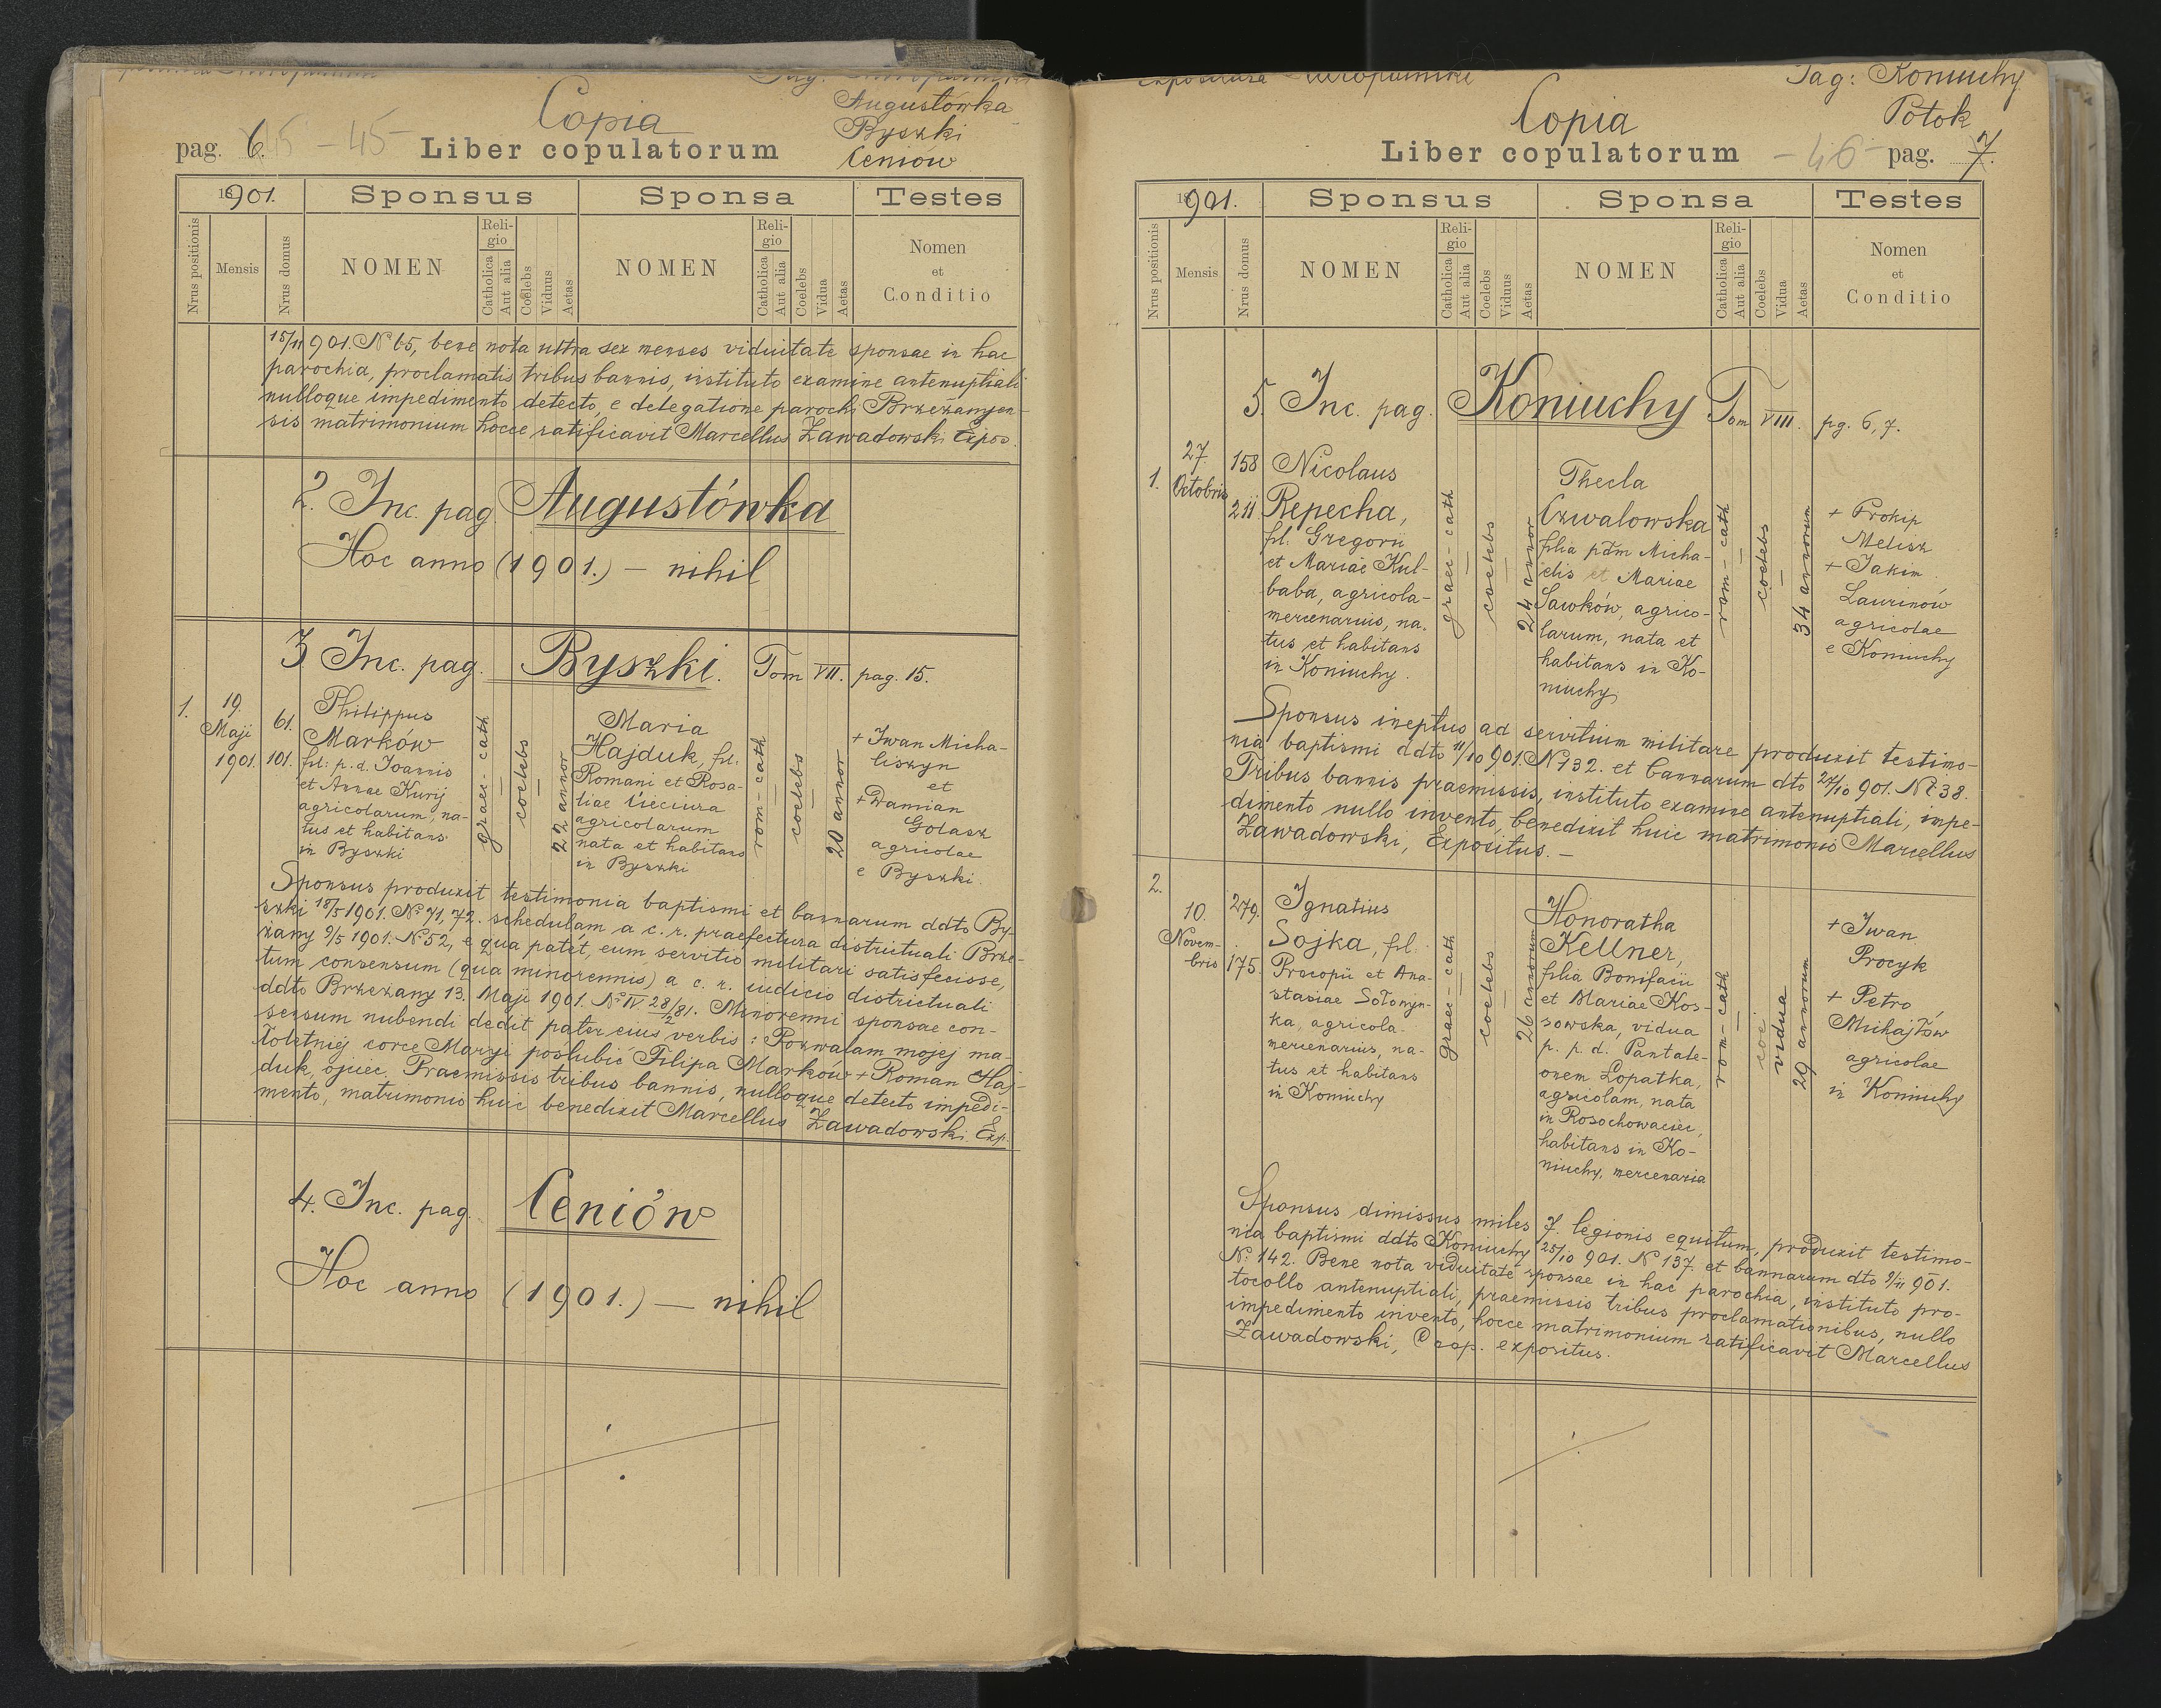 Augustówka
Copia
Byszki
pag. 6. - 45 -
Liber copulatorum
Ceniów
1901.
Sponsus
Sponsa
Testes
Nrus positionis
Mensis
Nrus domus
NOMEN
Religio
Catholica
Aut alia
Coelebs
Viduus
Aetas
NOMEN
Religio
Catholica
Aut alia
Coelebs
Vidua
Aetas
Nomen
et
Conditio
15/11 901. No 65, bene nota ultra sex menses viduitate sponsae in hac
parochia, proclamatis tribus bannis, instituto examine antenuptiali
nulloque impedimento detecto, e delegatione parochi Brzeżanyen-
sis matrimonium hocce ratificavit Marcellus Zawadowski Expos.
2. Inc. pag. Augustówka
Hoc anno (1901.) — nihil
3. Inc. pag. Byszki. Tom VII. pag. 15.
1.
19.
Maji
1901.
61.
101.
Philippus
Marków
fil: p. d. Joannis
et Annae Kurij
agricolarum, na-
tus et habitans
in Byszki
graec-cath
coelebs
22 annor
Maria
Hajduk, fil:
Romani et Rosa-
liae Cieciura
agricolarum
nata et habitans
in Byszki
rom-cath
coelebs
20 annor
+ Iwan Micha-
liszyn
et
+ Damian
Gołasz
agricolae
e Byszki.
Sponsus produxit testimonia baptismi et bannarum ddto By-
szki 18/5 1901. No 71, 72. schedulam a c. r. praefectura districtuali Brze-
żany 9/5 1901. No 52, e qua patet, eum servitio militari satisfecisse,
tum consensum (qua minorennis) a c. r. iudicio districtuali
ddto Brzeżany 13. Maji 1901. No IV 28/2 81. Minorenni sponsae con-
sensum nubendi dedit pater eius verbis: Pozwalam mojej ma-
łoletniej córce Maryi poślubić Filipa Marków + Roman Haj-
duk, ojciec. Praemissis tribus bannis, nulloque detecto impedi-
mento, matrimonio huic benedixit Marcellus Zawadowski. Exp.
4. Inc. pag. Ceniów
Hoc anno (1901.) — nihil
Pag: Koniuchy
Copia
Potok
Liber copulatorum
- 46 - pag. 7.
1901.
Sponsus
Sponsa
Testes
Nrus positionis
Mensis
Nrus domus
NOMEN
Religio
Catholica
Aut alia
Coelebs
Viduus
Aetas
NOMEN
Religio
Catholica
Aut alia
Coelebs
Vidua
Aetas
Nomen
et
Conditio
5. Inc. pag. Koniuchy Tom VIII. pg. 6, 7.
1.
27.
Octobris
158
211
Nicolaus
Repecha,
fil. Gregorii
et Mariae Kul-
baba, agricola-
mercenarius, na-
tus et habitans
in Koniuchy.
graec-cath
coelebs
24 annor
Thecla
Czwalowska
filia pdm Micha-
elis et Mariae
Sawków, agrico-
larum, nata et
habitans in Ko-
niuchy
rom-cath
coelebs
34 annorum
+ Prokip
Melisz
+ Jakim
Laurinów
agricolae
e Koniuchy
Sponsus ineptus ad servitium militare produxit testimo-
nia baptismi ddto 11/10 901. No 132. et bannarum dto 27/10 901. No 138.
Tribus bannis praemissis, instituto examine antenuptiali, impe-
dimento nullo invento, benedixit huic matrimonio Marcellus
Zawadowski, Expositus. —
2.
10.
Novem-
bris
279.
175.
Ignatius
Sojka, fil.
Procopii et Ana-
stasiae Sołomyn-
ka, agricola-
mercenarius, na-
tus et habitans
in Koniuchy
graec-cath
coelebs
26 annorum
Honoratha
Kellner,
filia Bonifacii
et Mariae Kos-
sowska, vidua
p. p. d. Pantale-
onem Łopatka,
agricolam, nata
in Rosochowaciec,
habitans in Ko-
niuchy, mercenaria
rom-cath
vidua
29 annorum
+ Iwan
Procyk
+ Petro
Michajłów
agricolae
in Koniuchy
Sponsus dimissus miles 7. legionis equitum, produxit testimo-
nia baptismi ddto Koniuchy 25/10 901. No 137. et bannarum dto 9/11 901.
No 142. Bene nota viduitate sponsae in hac parochia, instituto pro-
tocollo antenuptiali, praemissis tribus proclamationibus, nullo
impedimento invento, hocce matrimonium ratificavit Marcellus
Zawadowski, expositus.